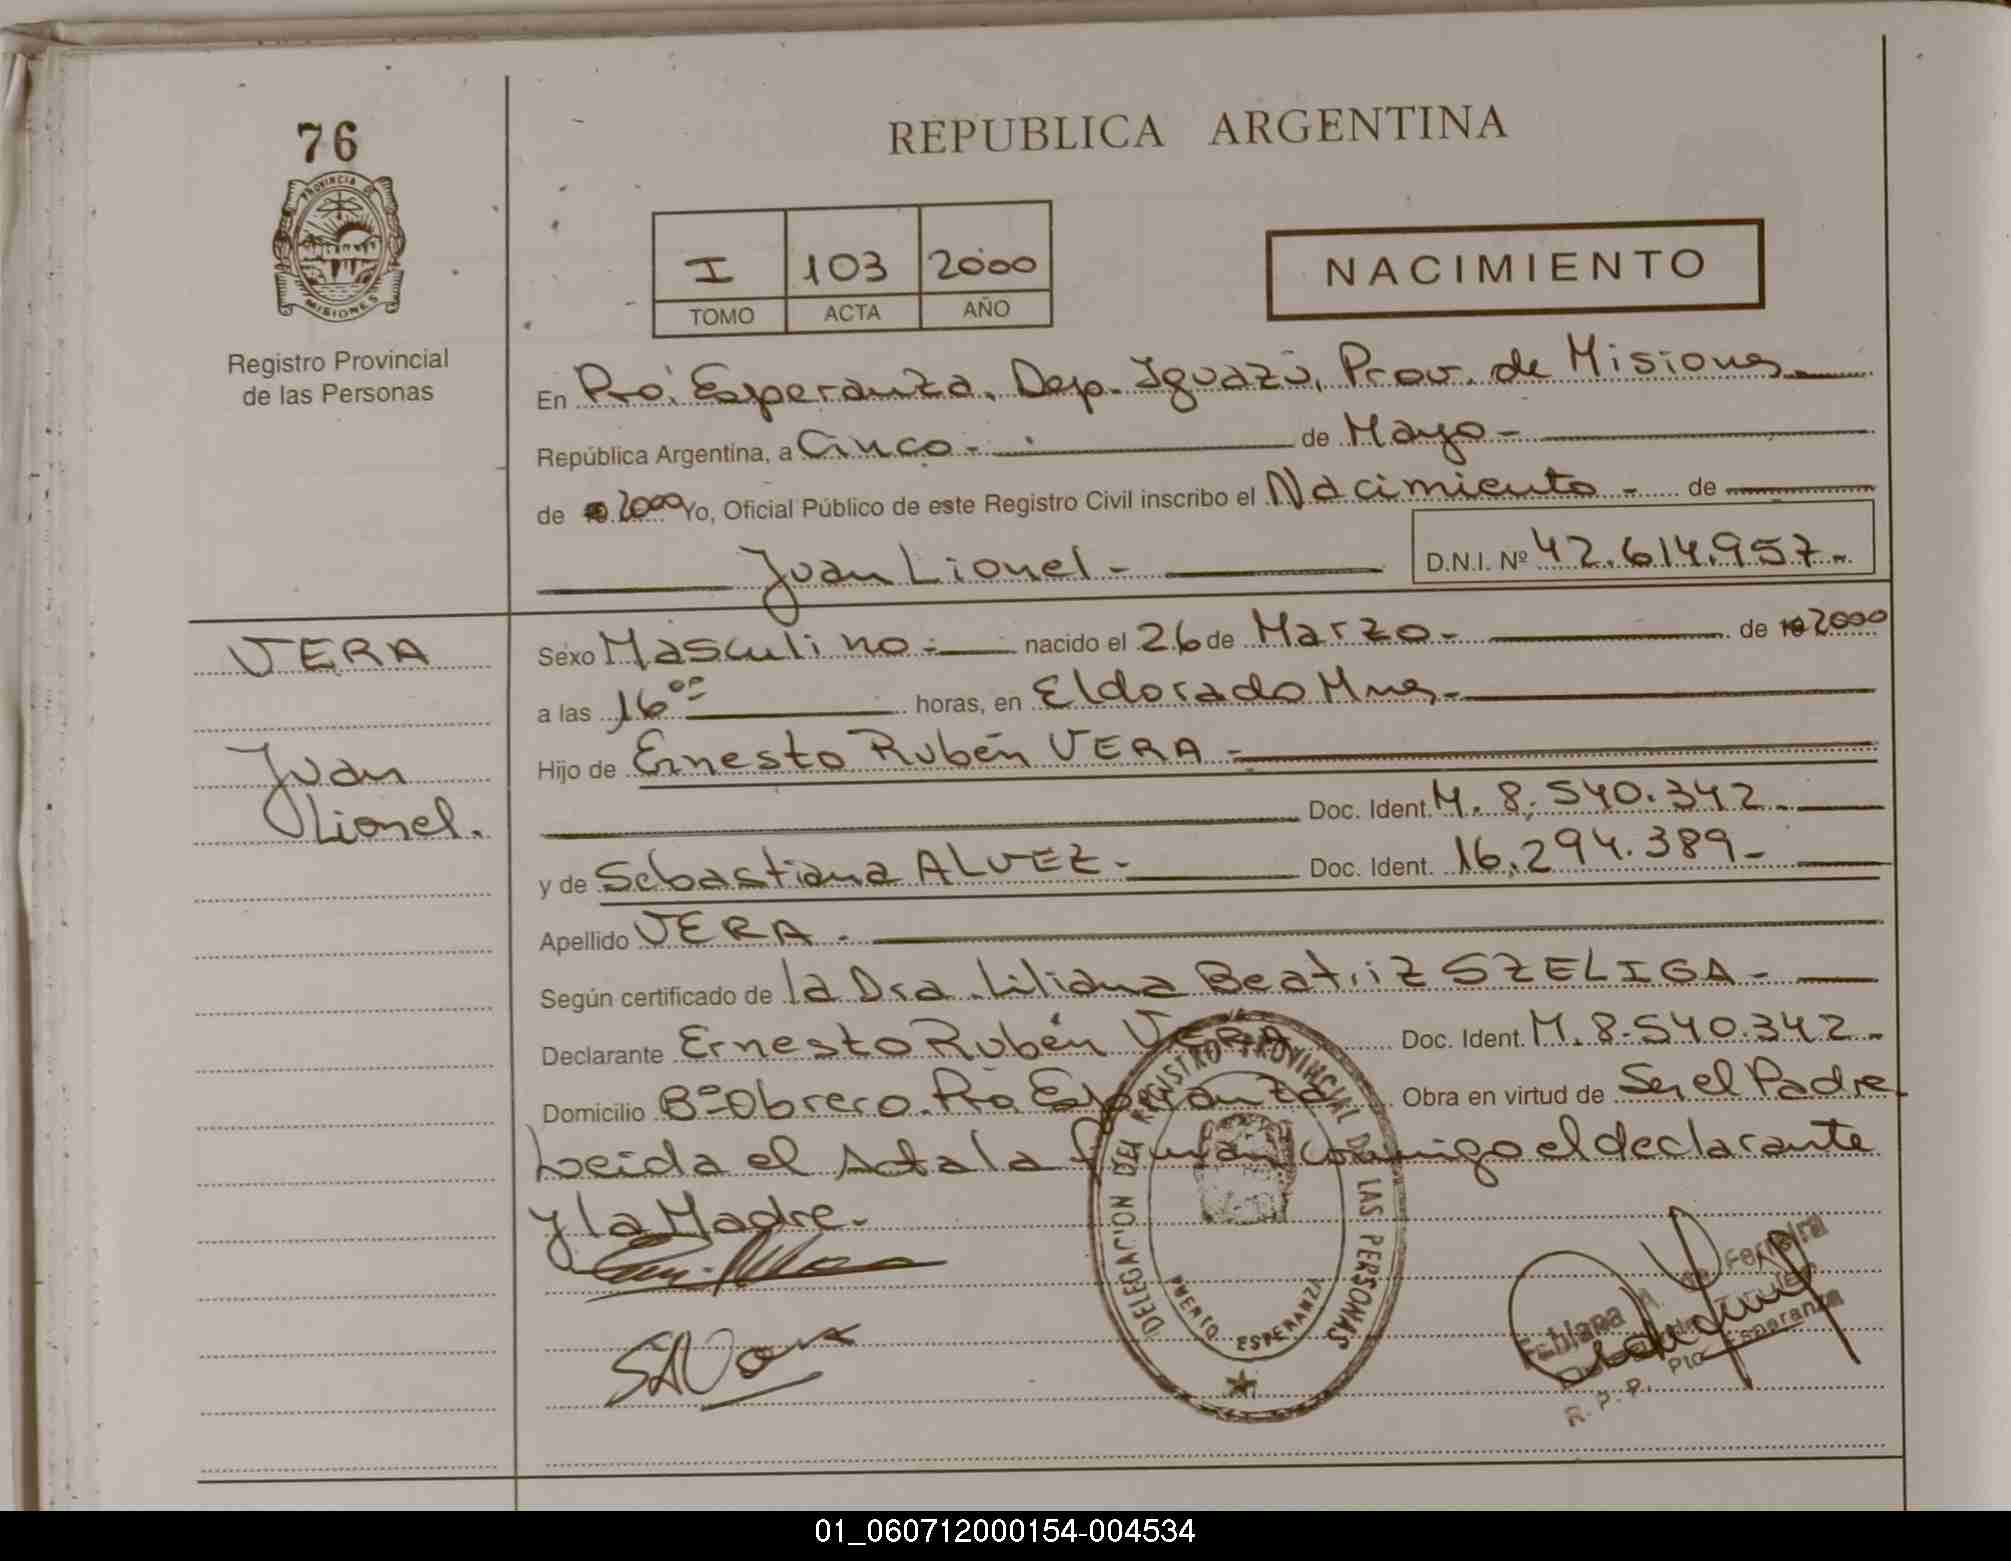 76
PROVINCIA DE
MISIONES
Registro Provincial
de las Personas
REPUBLICA ARGENTINA
I 103 2000
TOMO ACTA AÑO
NACIMIENTO
En Pto. Esperanza, Dep. Iguazú, Prov. de Misiones
República Argentina, a Cinco.- de Mayo-
de 2000 Yo, Oficial Público de este Registro Civil inscribo el Nacimiento - de
Juan Lionel - D.N.I. Nº 42.614.957-
VERA
Juan
Lionel.
Sexo Masculino.- nacido el 26 de Marzo- de 2000
a las 16⁰⁰ horas, en Eldorado Mnes.-
Hijo de Ernesto Rubén VERA -
Doc. Ident. M. 8.540.342 -
y de Sebastiana ALVEZ - Doc. Ident. 16.294.389-
Apellido VERA -
Según certificado de la Dra. Liliana Beatriz SZELIGA -
Declarante Ernesto Rubén VERA Doc. Ident. M. 8.540.342 -
Domicilio Bº Obrero. Pto. Esperanza Obra en virtud de Ser el Padre
Leida el Acta la firman conmigo el declarante
y la Madre.-
DELEGACION DEL REGISTRO PROVINCIAL DE LAS PERSONAS
PUERTO ESPERANZA
Fabiana de Ferreira
R. P. P. Pto Esperanza
01_060712000154-004534